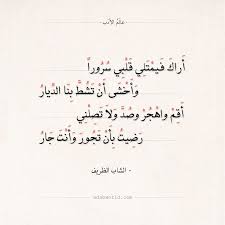 عالم الأدب
أَراكَ فَيمْتَلِي قَلْبي سُرُوراً
وَأَخْشَى أَنْ تَشُطَّ بِنَا الدِّيارُ
أَقِمْ واهْجُرْ وصُدَّ وَلا تَصِلْني
رَضِيتُ بِأَنْ تَجُورَ وَأَنْتَ جَارُ
- الشاب الظريف
adabworld.com